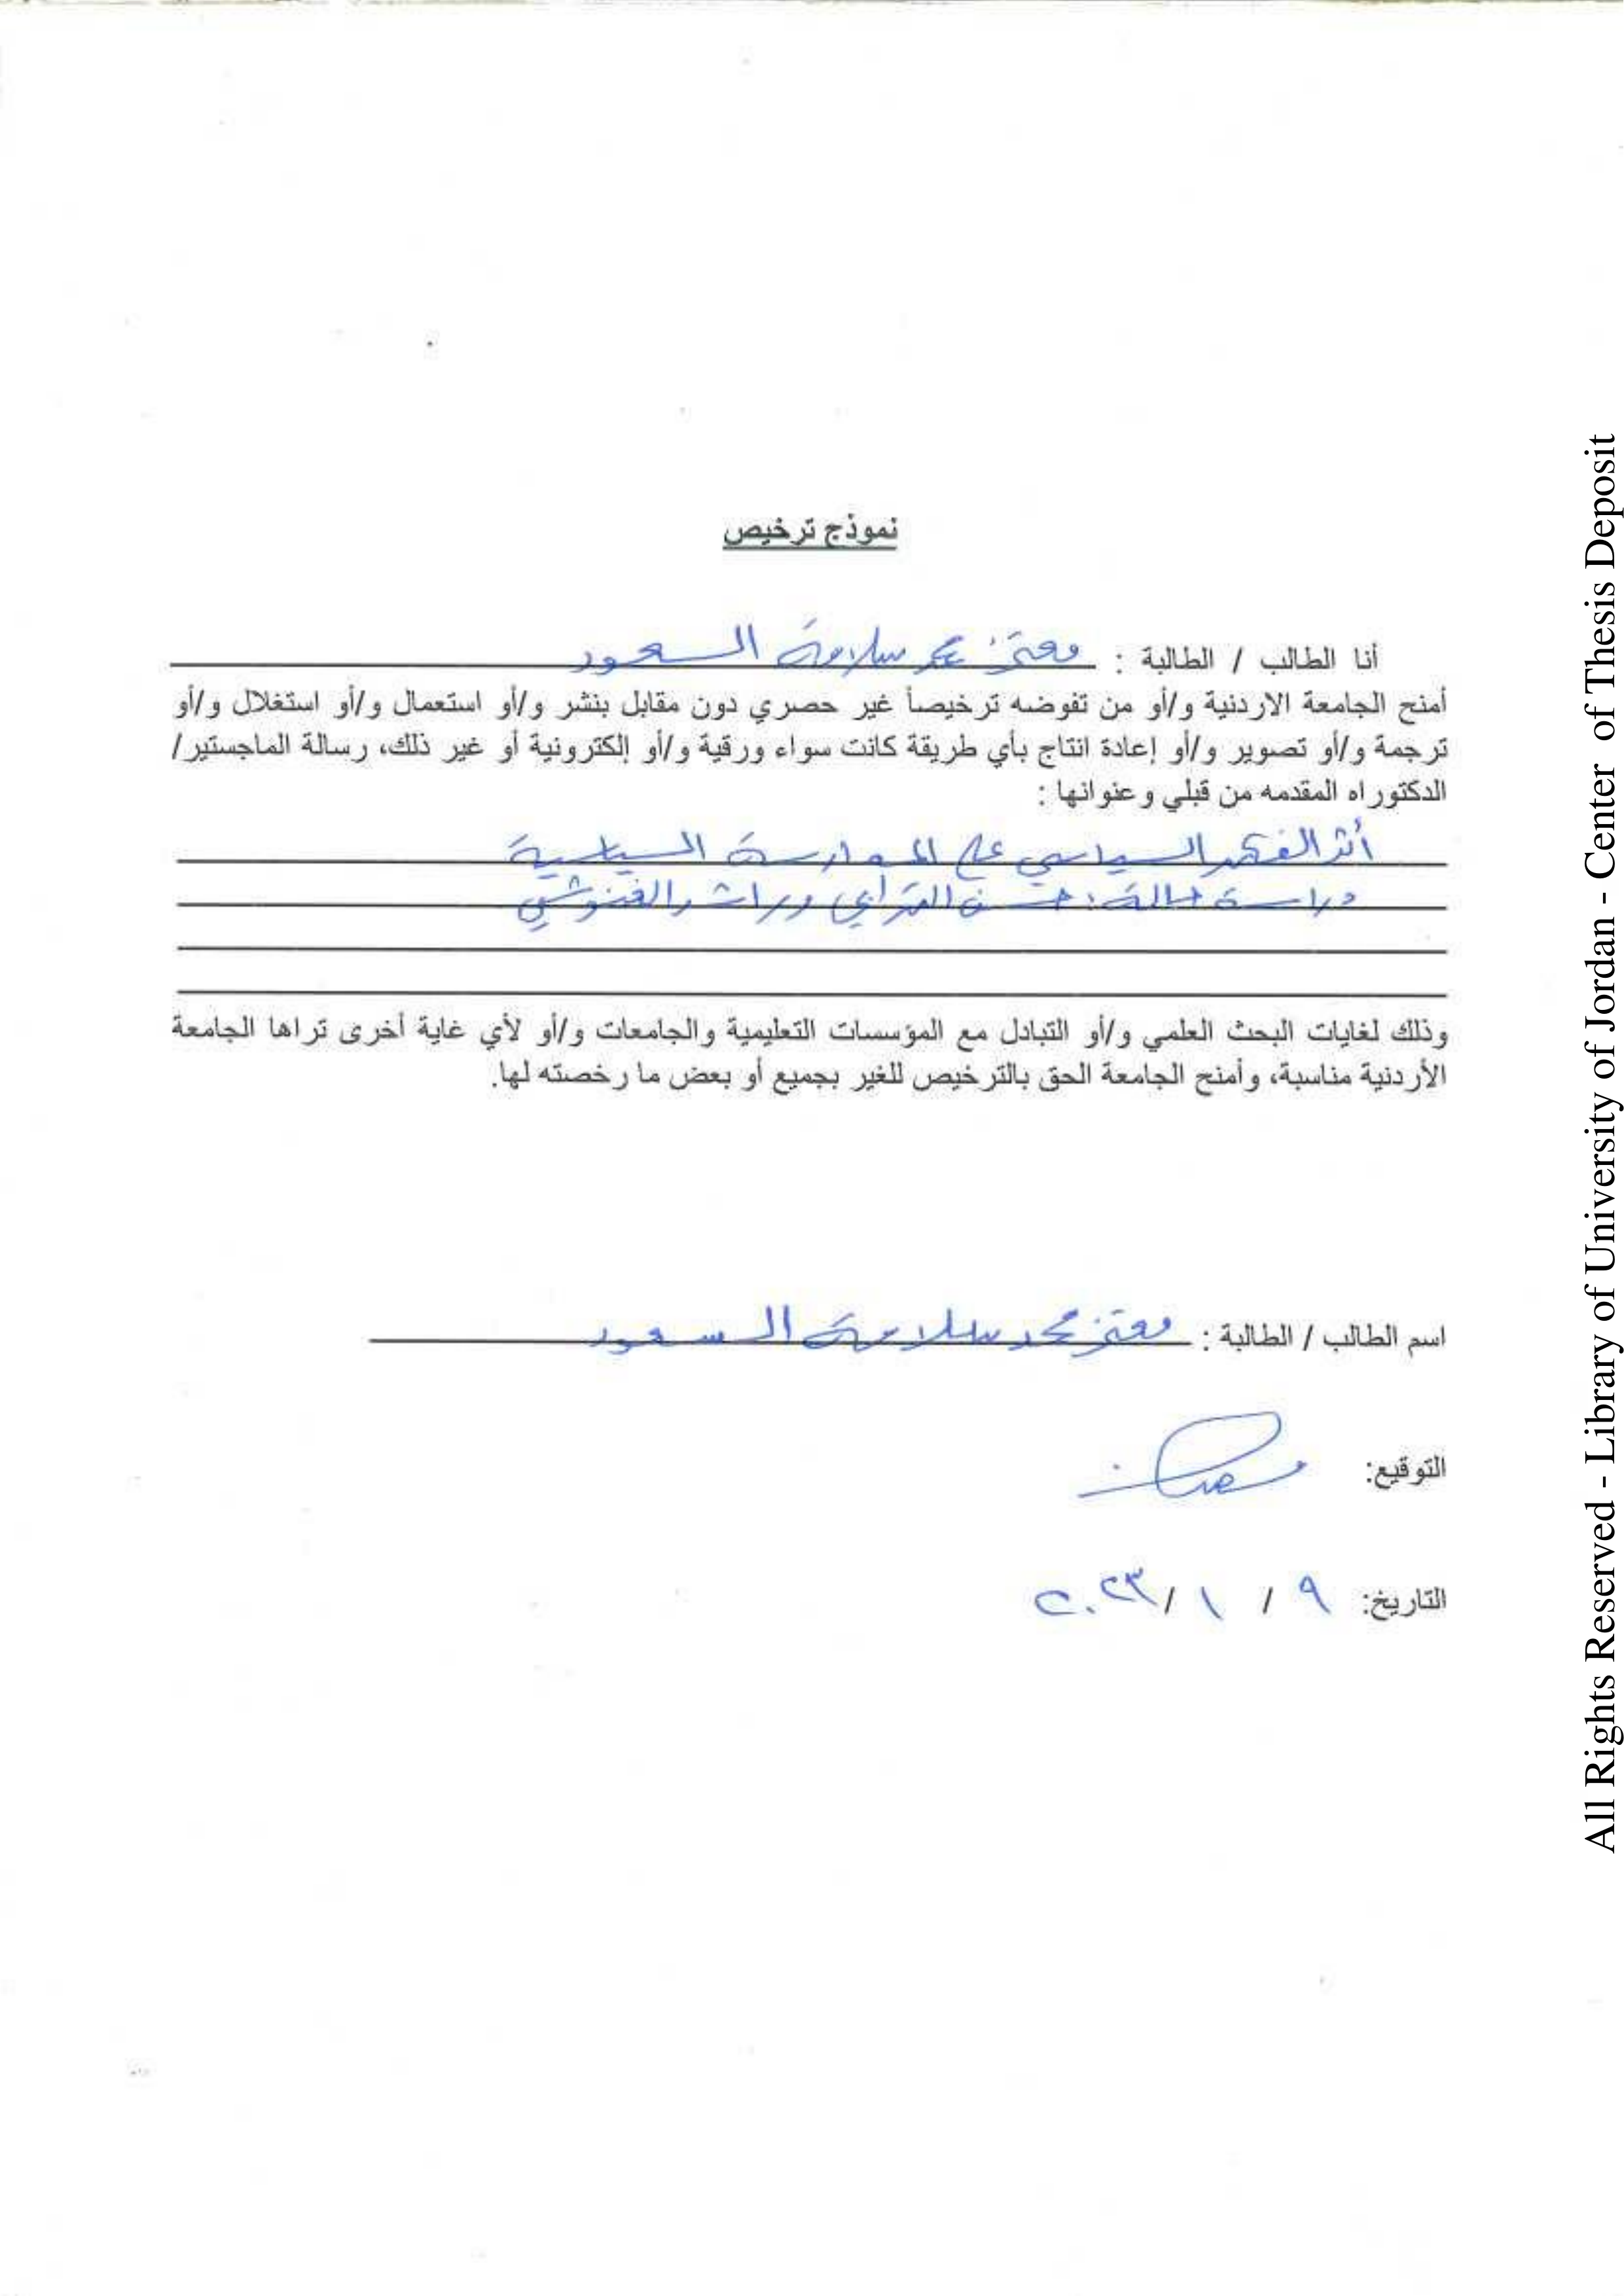 نموذج ترخيص
أنا الطالب / الطالبة : معتز محمد سلامة السعود
أمنح الجامعة الاردنية و/أو من تفوضه ترخيصاً غير حصري دون مقابل بنشر و/أو استعمال و/أو استغلال و/أو
ترجمة و/أو تصوير و/أو إعادة انتاج بأي طريقة كانت سواء ورقية و/أو إلكترونية أو غير ذلك، رسالة الماجستير/
الدكتوراه المقدمه من قبلي وعنوانها :
أثر الفكر السياسي على الممارسة السياسية
دراسة حالة: حسن الترابي وراشد الغنوشي
وذلك لغايات البحث العلمي و/أو التبادل مع المؤسسات التعليمية والجامعات و/أو لأي غاية أخرى تراها الجامعة
الأردنية مناسبة، وأمنح الجامعة الحق بالترخيص للغير بجميع أو بعض ما رخصته لها.
اسم الطالب / الطالبة : معتز محمد سلامة السعود
التوقيع:
التاريخ: ٩ / ١ /٢٠٢٣
All Rights Reserved - Library of University of Jordan - Center of Thesis Deposit